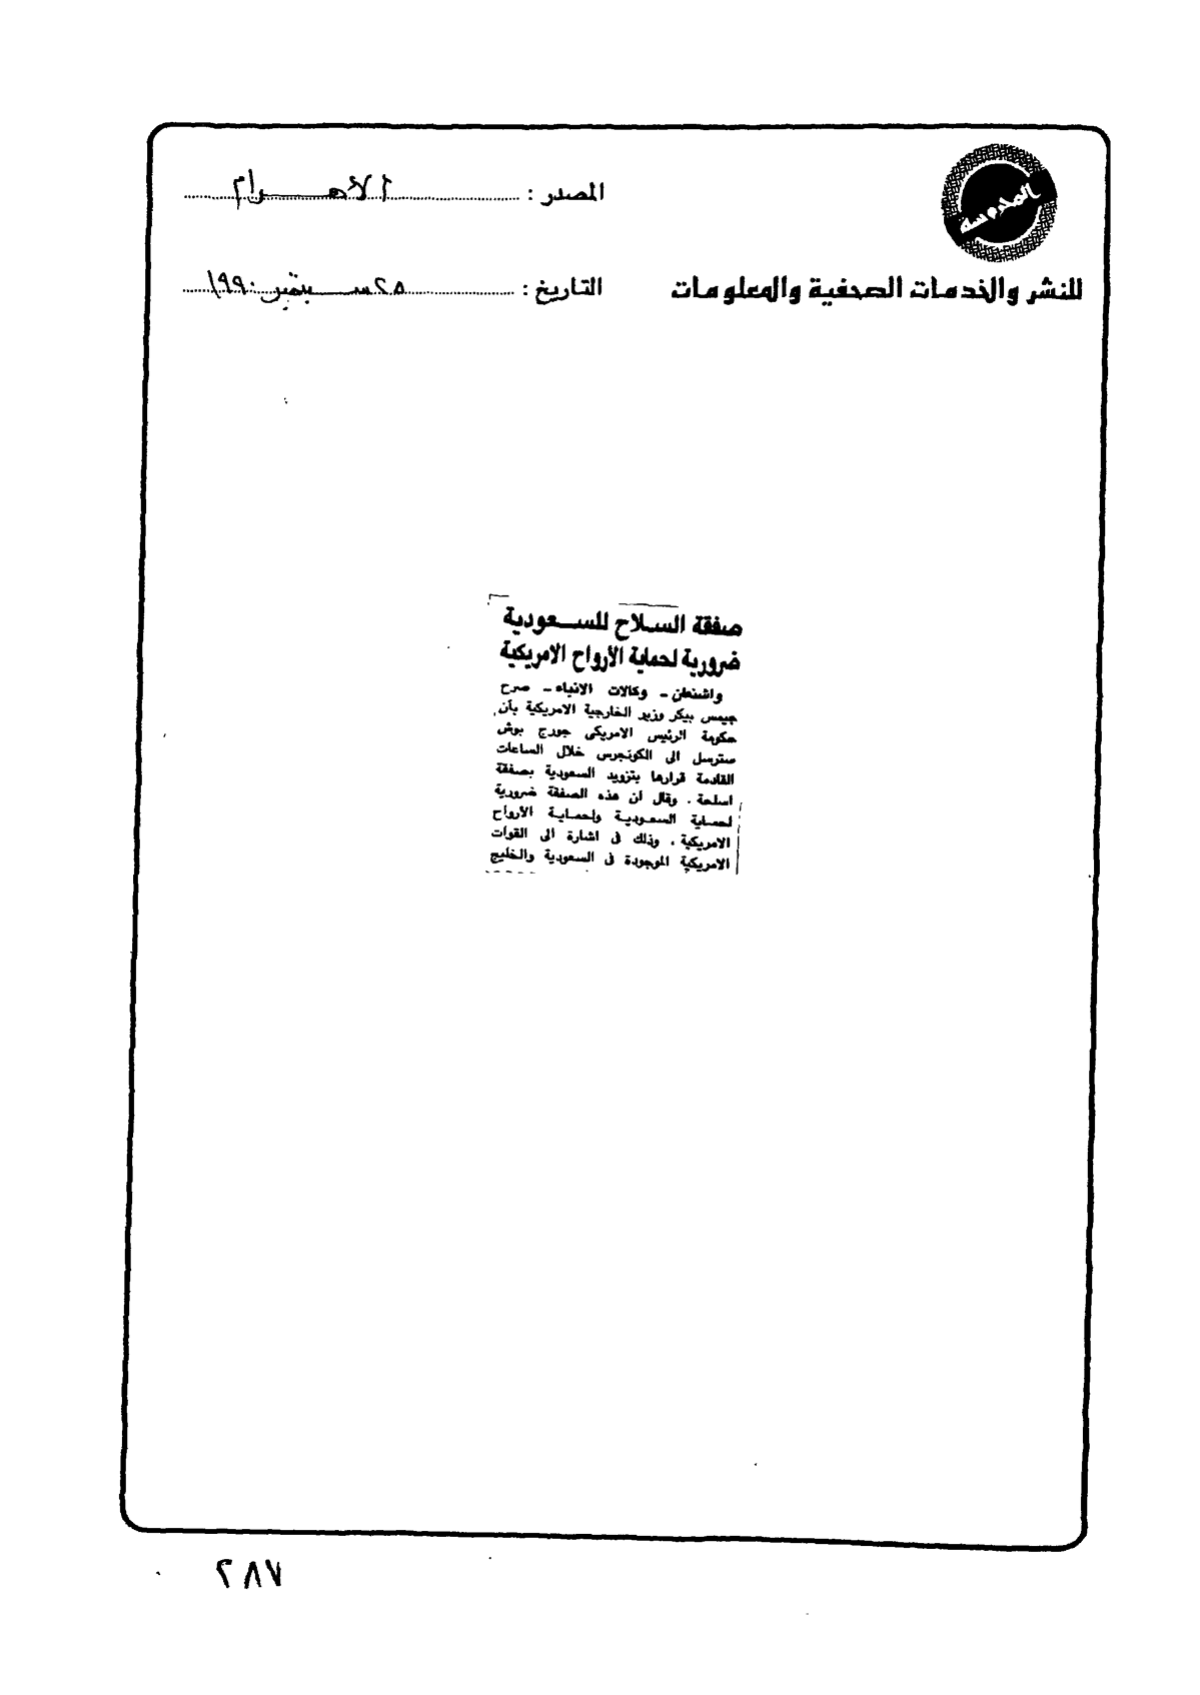 المدرسة
المصدر : الأهرام
للنشر والخدمات الصحفية والمعلومات
التاريخ : ٢٥ سبتمبر ١٩٩٠
صفقة السلاح للسعودية
ضرورية لحماية الأرواح الامريكية
واشنطن - وكالات الانباء - صرح
جيمس بيكر وزير الخارجية الامريكية بأن
حكومة الرئيس الامريكى جورج بوش
سترسل الى الكونجرس خلال الساعات
القادمة قرارها بتزويد السعودية بصفقة
اسلحة . وقال ان هذه الصفقة ضرورية
لحماية السعودية ولحماية الأرواح
الامريكية ، وذلك فى اشارة الى القوات
الامريكية الموجودة فى السعودية والخليج
٢٨٧